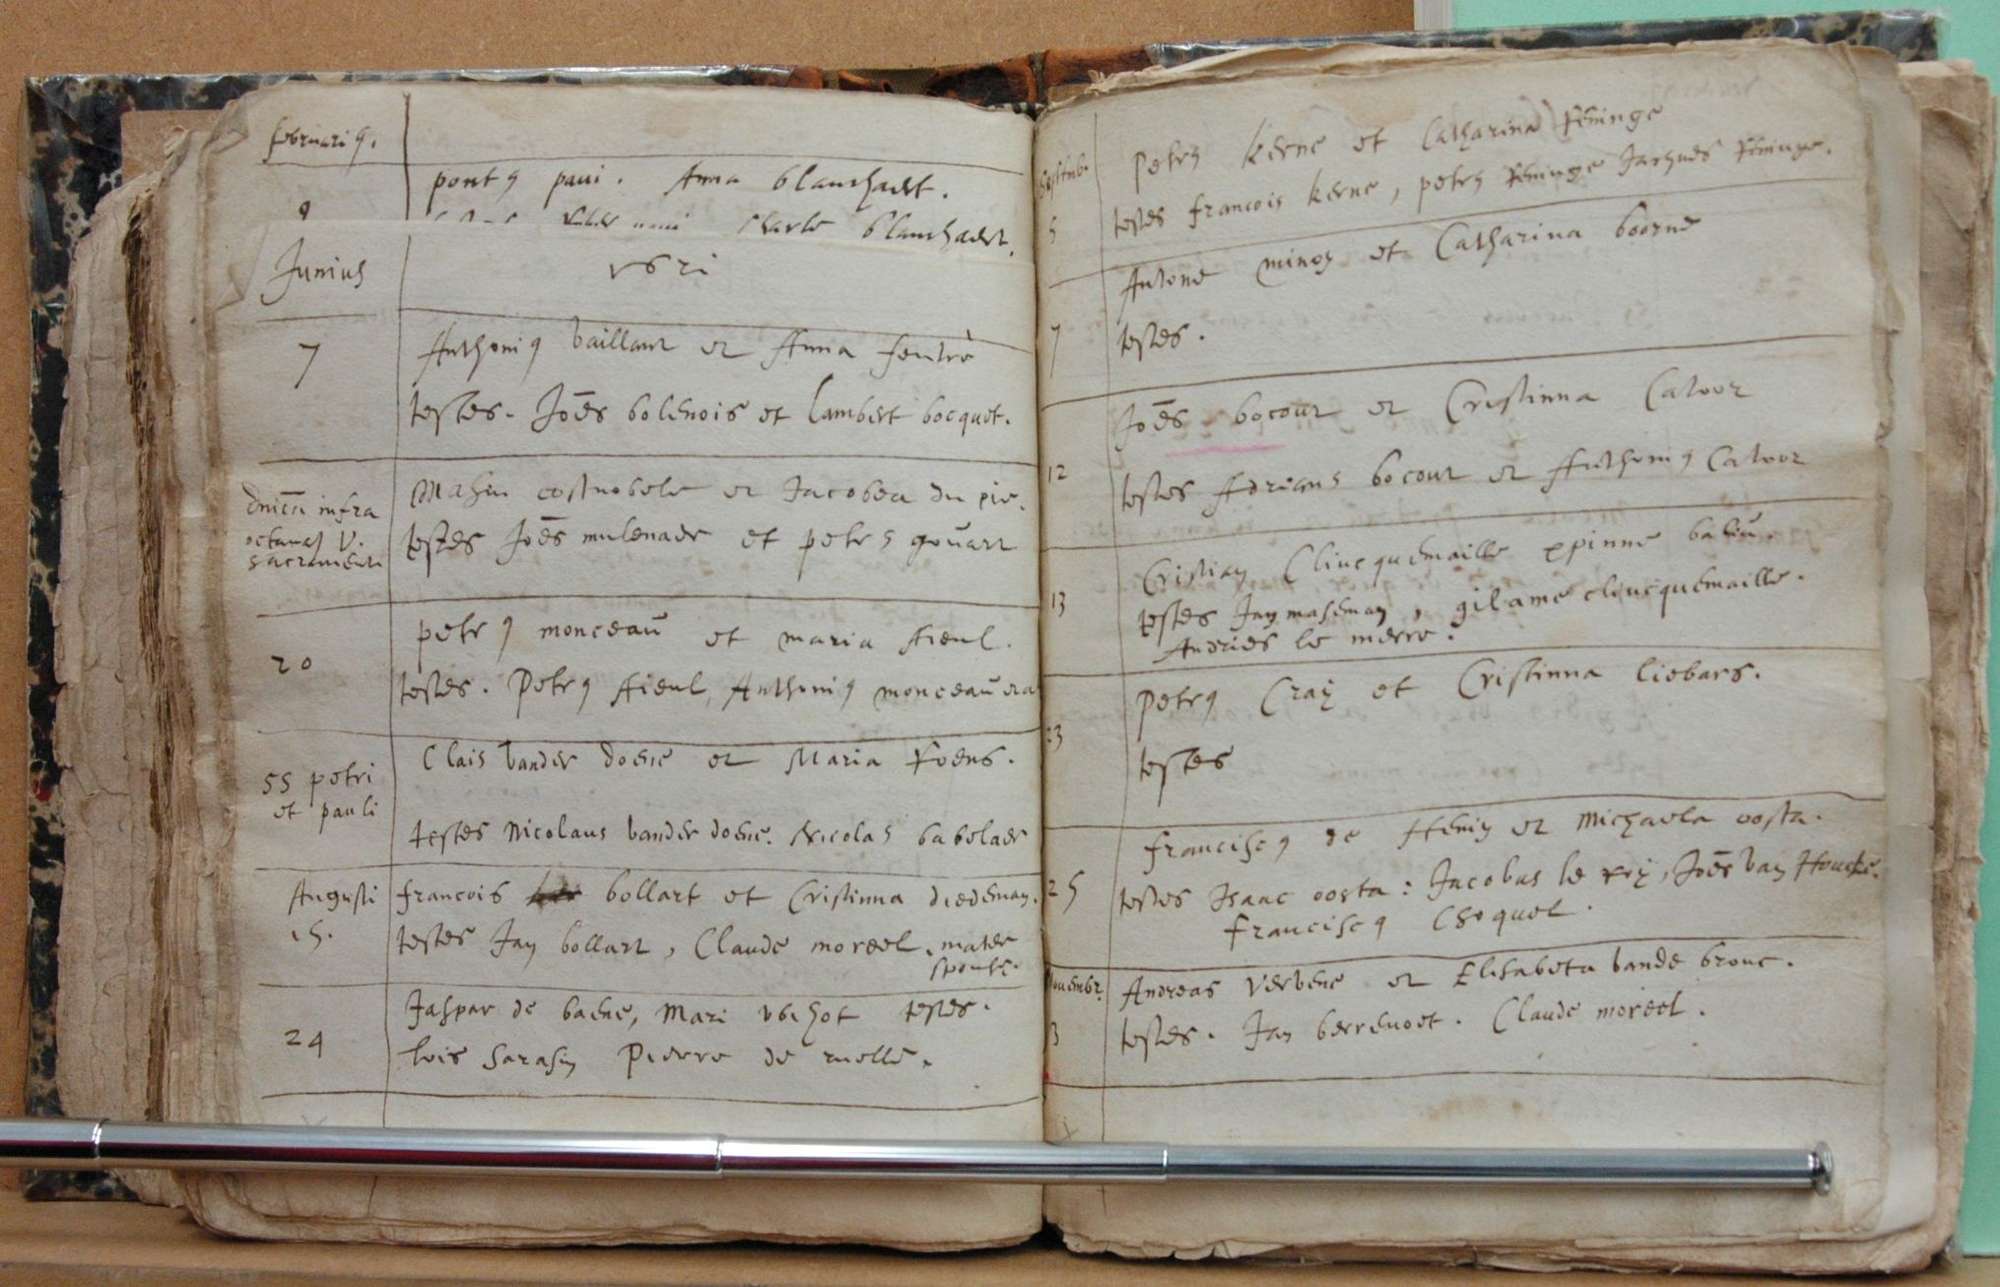 februari9.
pont9 paui. Anna blanchaert.
Charle blanchaert.
Junius
1621
7
Anthoni9 vaillant et Anna
testes. Joēs bolenois et Lambert bocquet.
infra
octauas V.
sacramenti
Mahiu costnobele et Jacobea du pie.
testes Joēs mulenaer et petr9 gouart
20
petr9 monceaū et maria Aieul.
testes. Petr9 Aieul, Anthoni9 monceaū
SS petri
et pauli
Clais vander doene et Maria Roens.
testes Nicolaus vander doene. Nicolas babelaer
Augusti
15.
francois bollart et Cristinna diedeman.
testes Jan bollart, Claude moreel, mater
sponse.
24
Jaspar de baene, Mari testes.
lois sarasin Pierre de ruelle.
Septemb.
5
Petr9 kerne et Catharina Rēninge
testes francois kerne, petr9 Rēninge Jacques Rēninge.
7
Antone minon et Catharina boorne
testes.
12
Joēs bocourt et Cristinna Catoor
testes Adrianus bocourt et Anthoni9 Catoor
13
Cristian Clincquemaille
testes Jan maseman, gilame clincquemaille.
Andries le merre.
23
Petr9 Cray et Cristinna liebars.
testes
25
francisc9 de Henin et Michaela oosta.
testes Isaac oosta: Jacobus le roy, Joēs van Houcke.
francisc9 Choquel.
Nouembr.
3
Andreas Verbene et Elisabeta vande brouc.
testes. Jan berrenoet. Claude moreel.